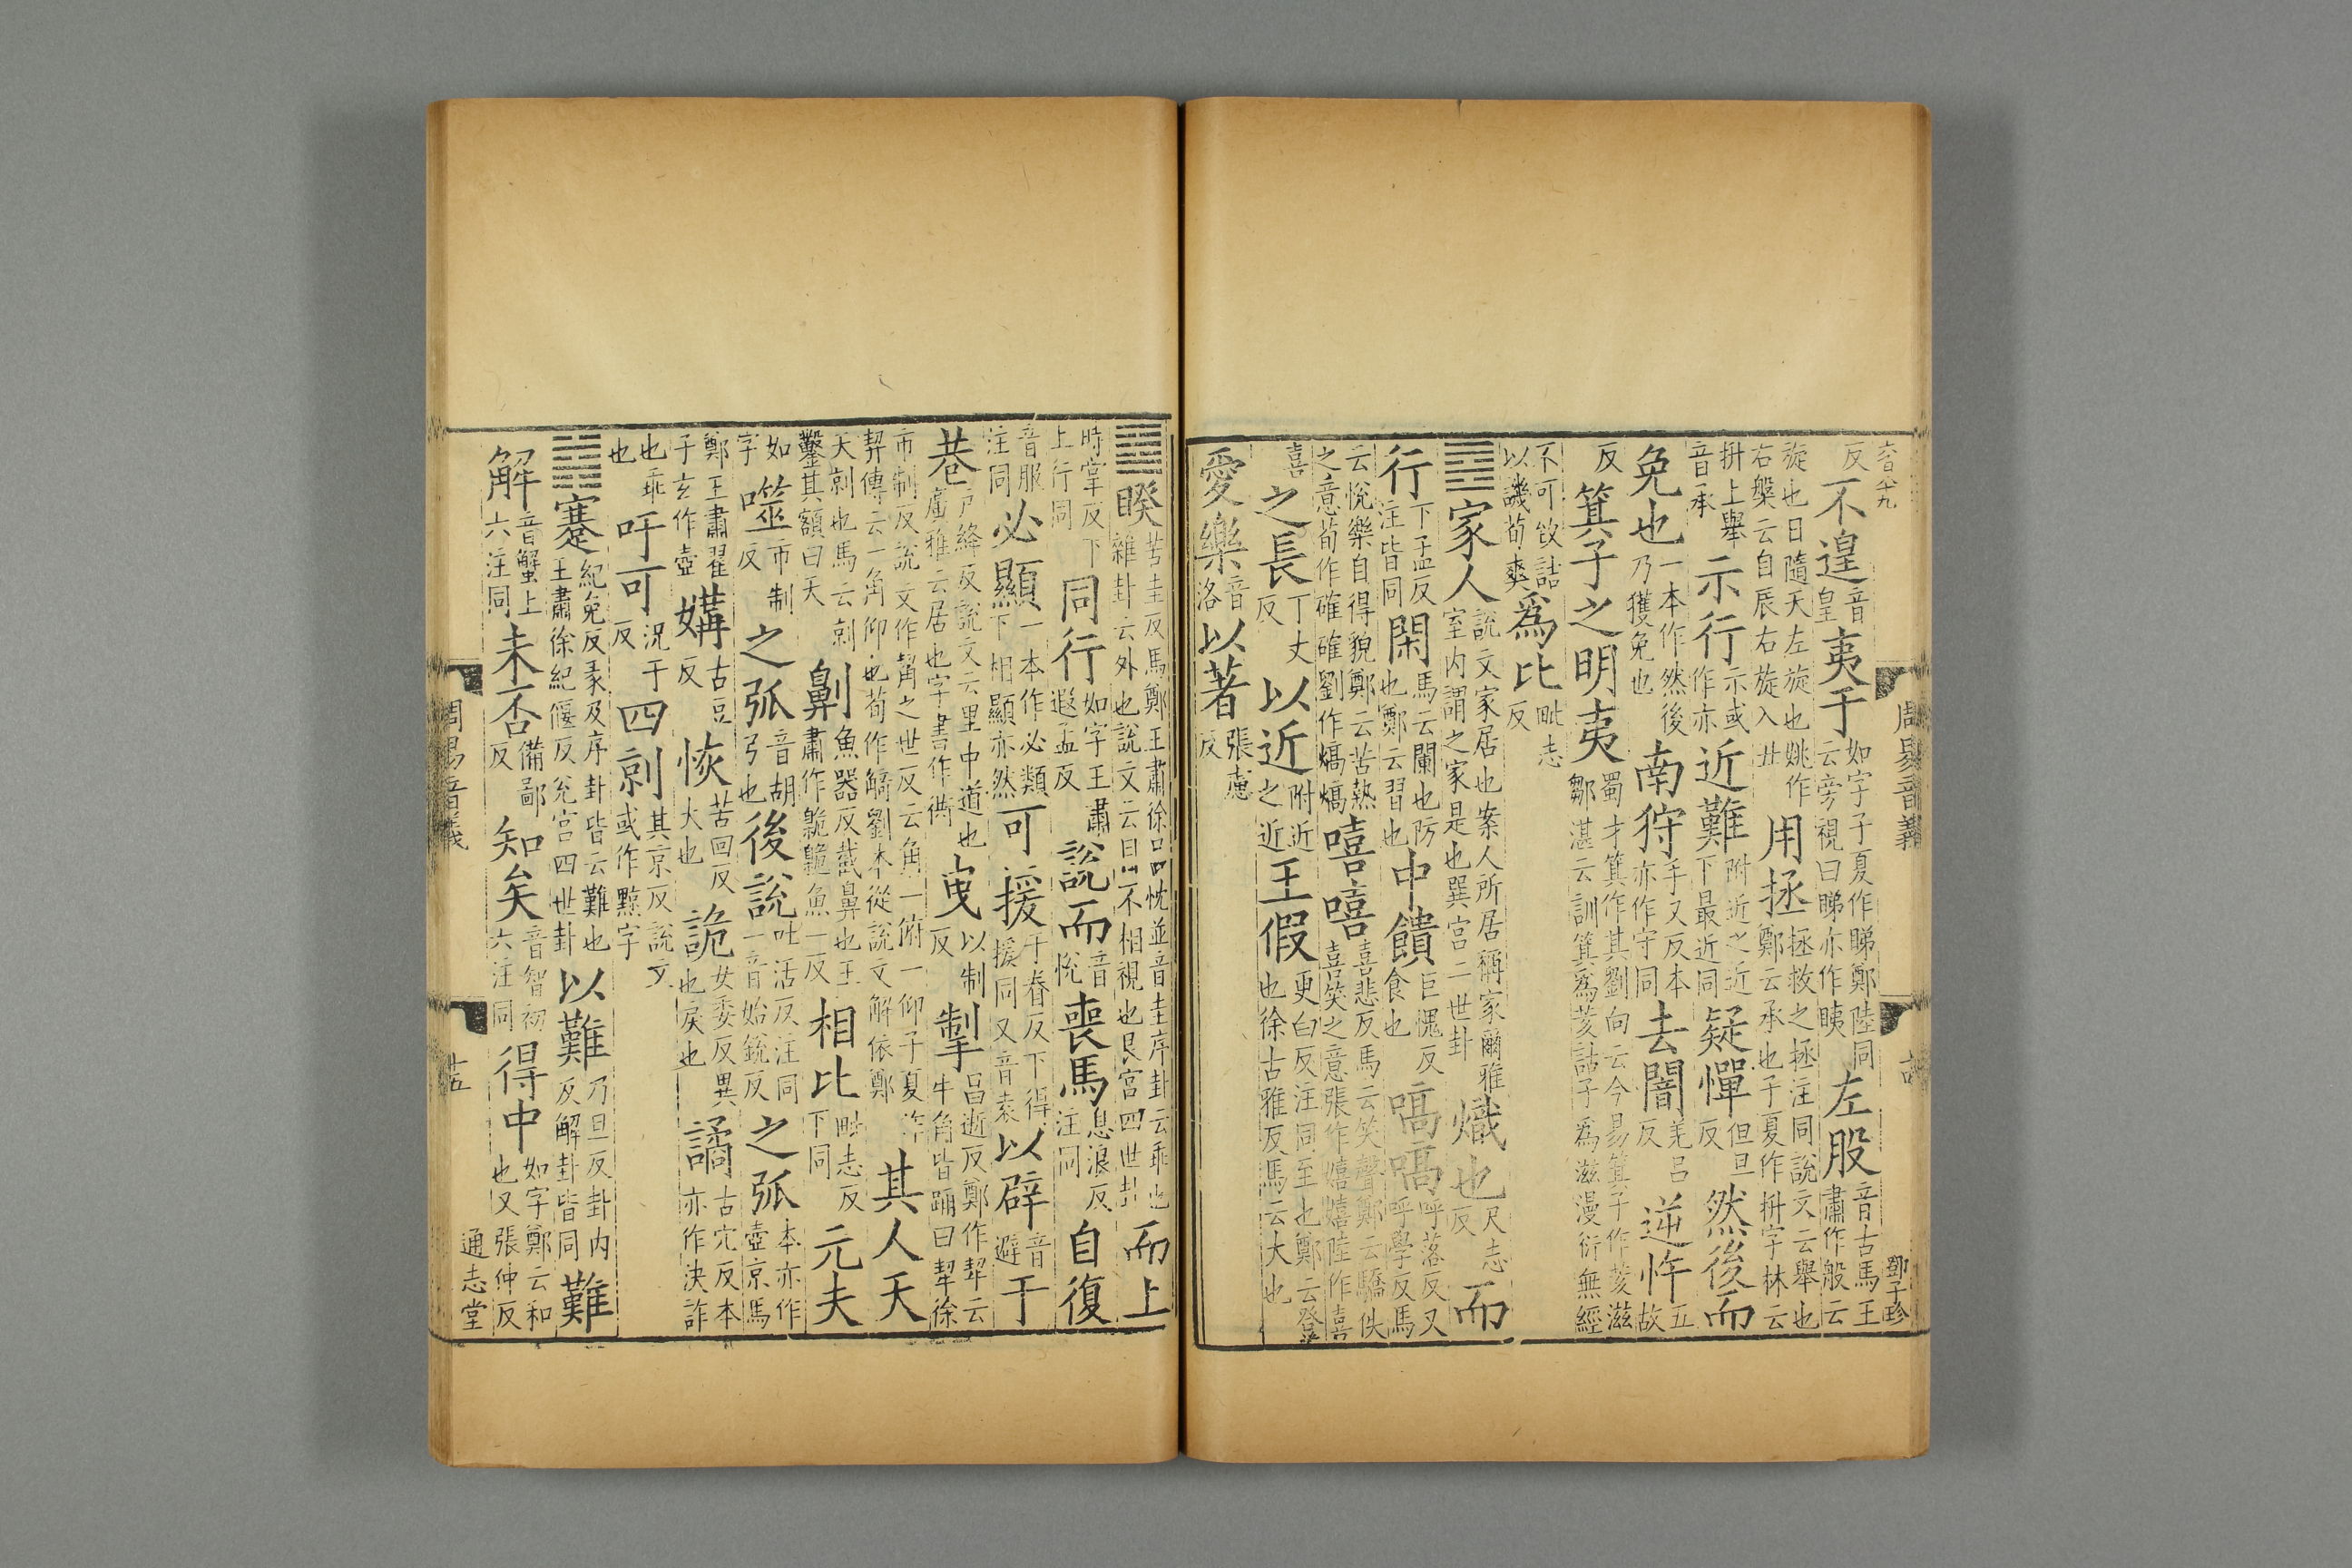 六百八十九
周易音義
鄧子珍
反不遑音皇夷于如字子夏作睇鄭陸同云旁視曰睇亦作眱左股音古馬王肅作般云
旋也日隨天左旋也姚作右槃云自辰右旋入丑用拯拯救之拯注同說文云舉也鄭云承也子夏作抍字林云
抍上舉音承示行示或作亦近難附近之近下最近同疑憚但旦反然後而
免也一本作然後乃獲免也南狩手又反本亦作守同去闇羌呂反逆忤五故
反箕子之明夷蜀才箕作其劉向云今易箕子作荄滋鄒湛云訓箕為荄詁子為滋漫衍無經
不可致詰以譏荀爽為比毗志反
䷤家人說文家居也案人所居稱家爾雅室内謂之家是也巽宮二世卦熾也尺志反而
行下孟反注皆同閑馬云闌也防也鄭云習也中饋巨愧反食也嗃嗃呼落反又呼學反馬
云悅樂自得貌鄭云苦熱之意荀作確確劉作熇熇嘻嘻喜悲反馬云笑聲鄭云驕佚喜笑之意張作嬉嬉陸作喜
喜之長丁丈反以近附近之近王假更白反注同至也鄭云登也徐古雅反馬云大也
愛樂音洛以著張慮反
䷥睽苦圭反馬鄭王肅徐呂忱並音圭序卦云乖也雜卦云外也說文云目不相視也艮宮四世卦而上
時掌反下上行同同行如字王肅遐孟反說而音悅喪馬息浪反注同自復
音服注同必顯一本作必類下相顯亦然可援于眷反下得援同又音袁以辟音避于
巷戶絳反說文云里中道也廣雅云居也字書作衖曳以制反掣昌逝反鄭作犎云牛角皆踊曰犎徐
市制反說文作觢之世反云角一俯一仰子夏作契傳云一角仰也荀作觭劉本從說文解依鄭其人天
天剠也馬云剠鑿其額曰天劓魚器反截鼻也王肅作臲臲魚一反相比毗志反下同元夫
如字噬市制反之弧音胡弓也後說吐活反注同一音始銳反之弧本亦作壺京馬
鄭王肅翟子玄作壺媾古豆反恢苦回反大也詭女委反異也戾也譎古穴反本亦作決詐
也乖也吁可況于反四剠其京反說文或作黥字
䷦蹇紀免反彖及序卦皆云難也王肅徐紀偃反兌宮四世卦以難乃旦反卦内反解卦皆同難
解音蟹上六注同未否備鄙反知矣音智初六注同得中如字鄭云和也又張仲反
周易音義
十五
通志堂